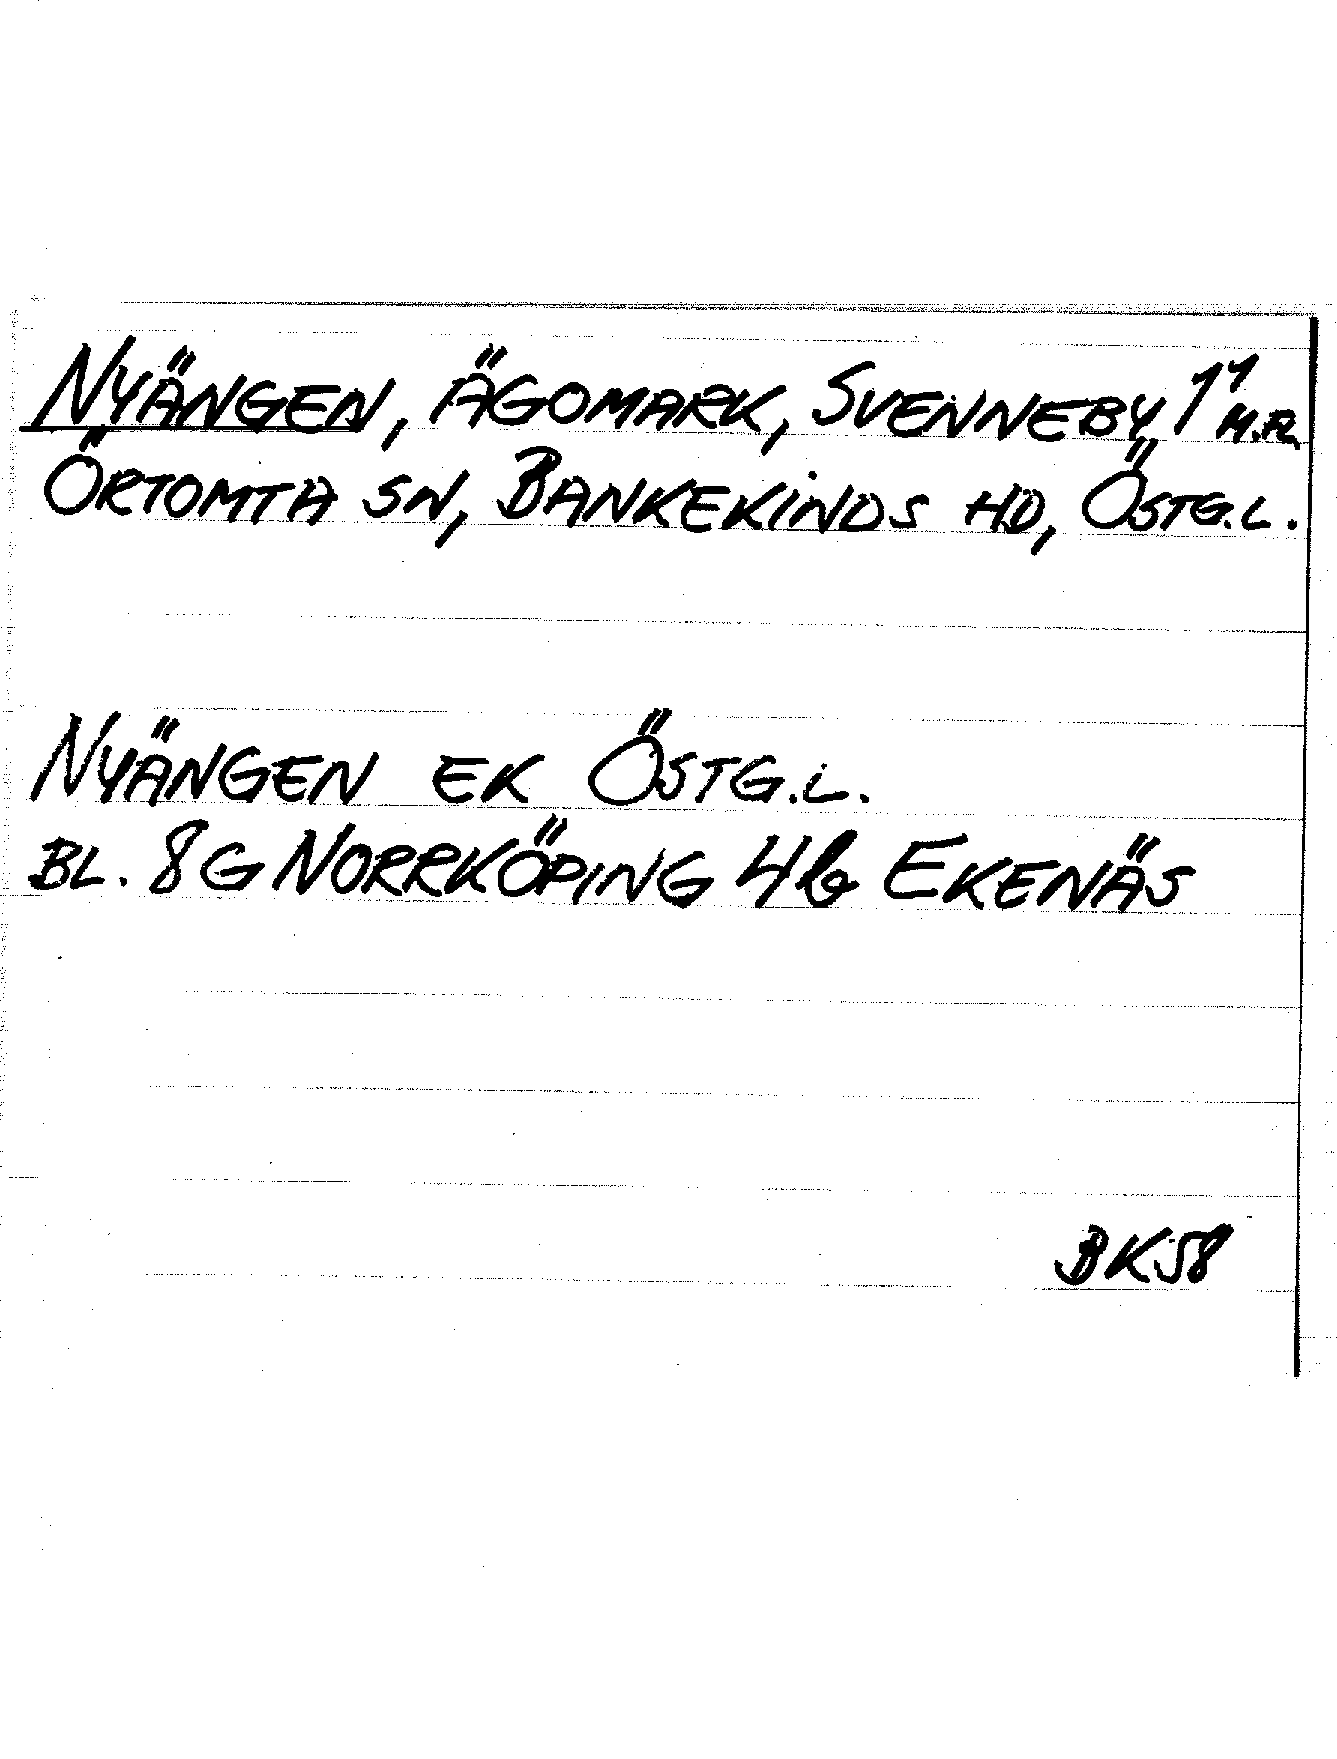 NYÄNGEN, ÄGOMARK, SVENNEBY 1¹ M.FL.
ÖRTOMTA SN, BANKEKINDS HD, ÖSTG.L.
NYÄNGEN EK ÖSTG.L.
BL. 8G NORRKÖPING 4b EKENÄS
BK58